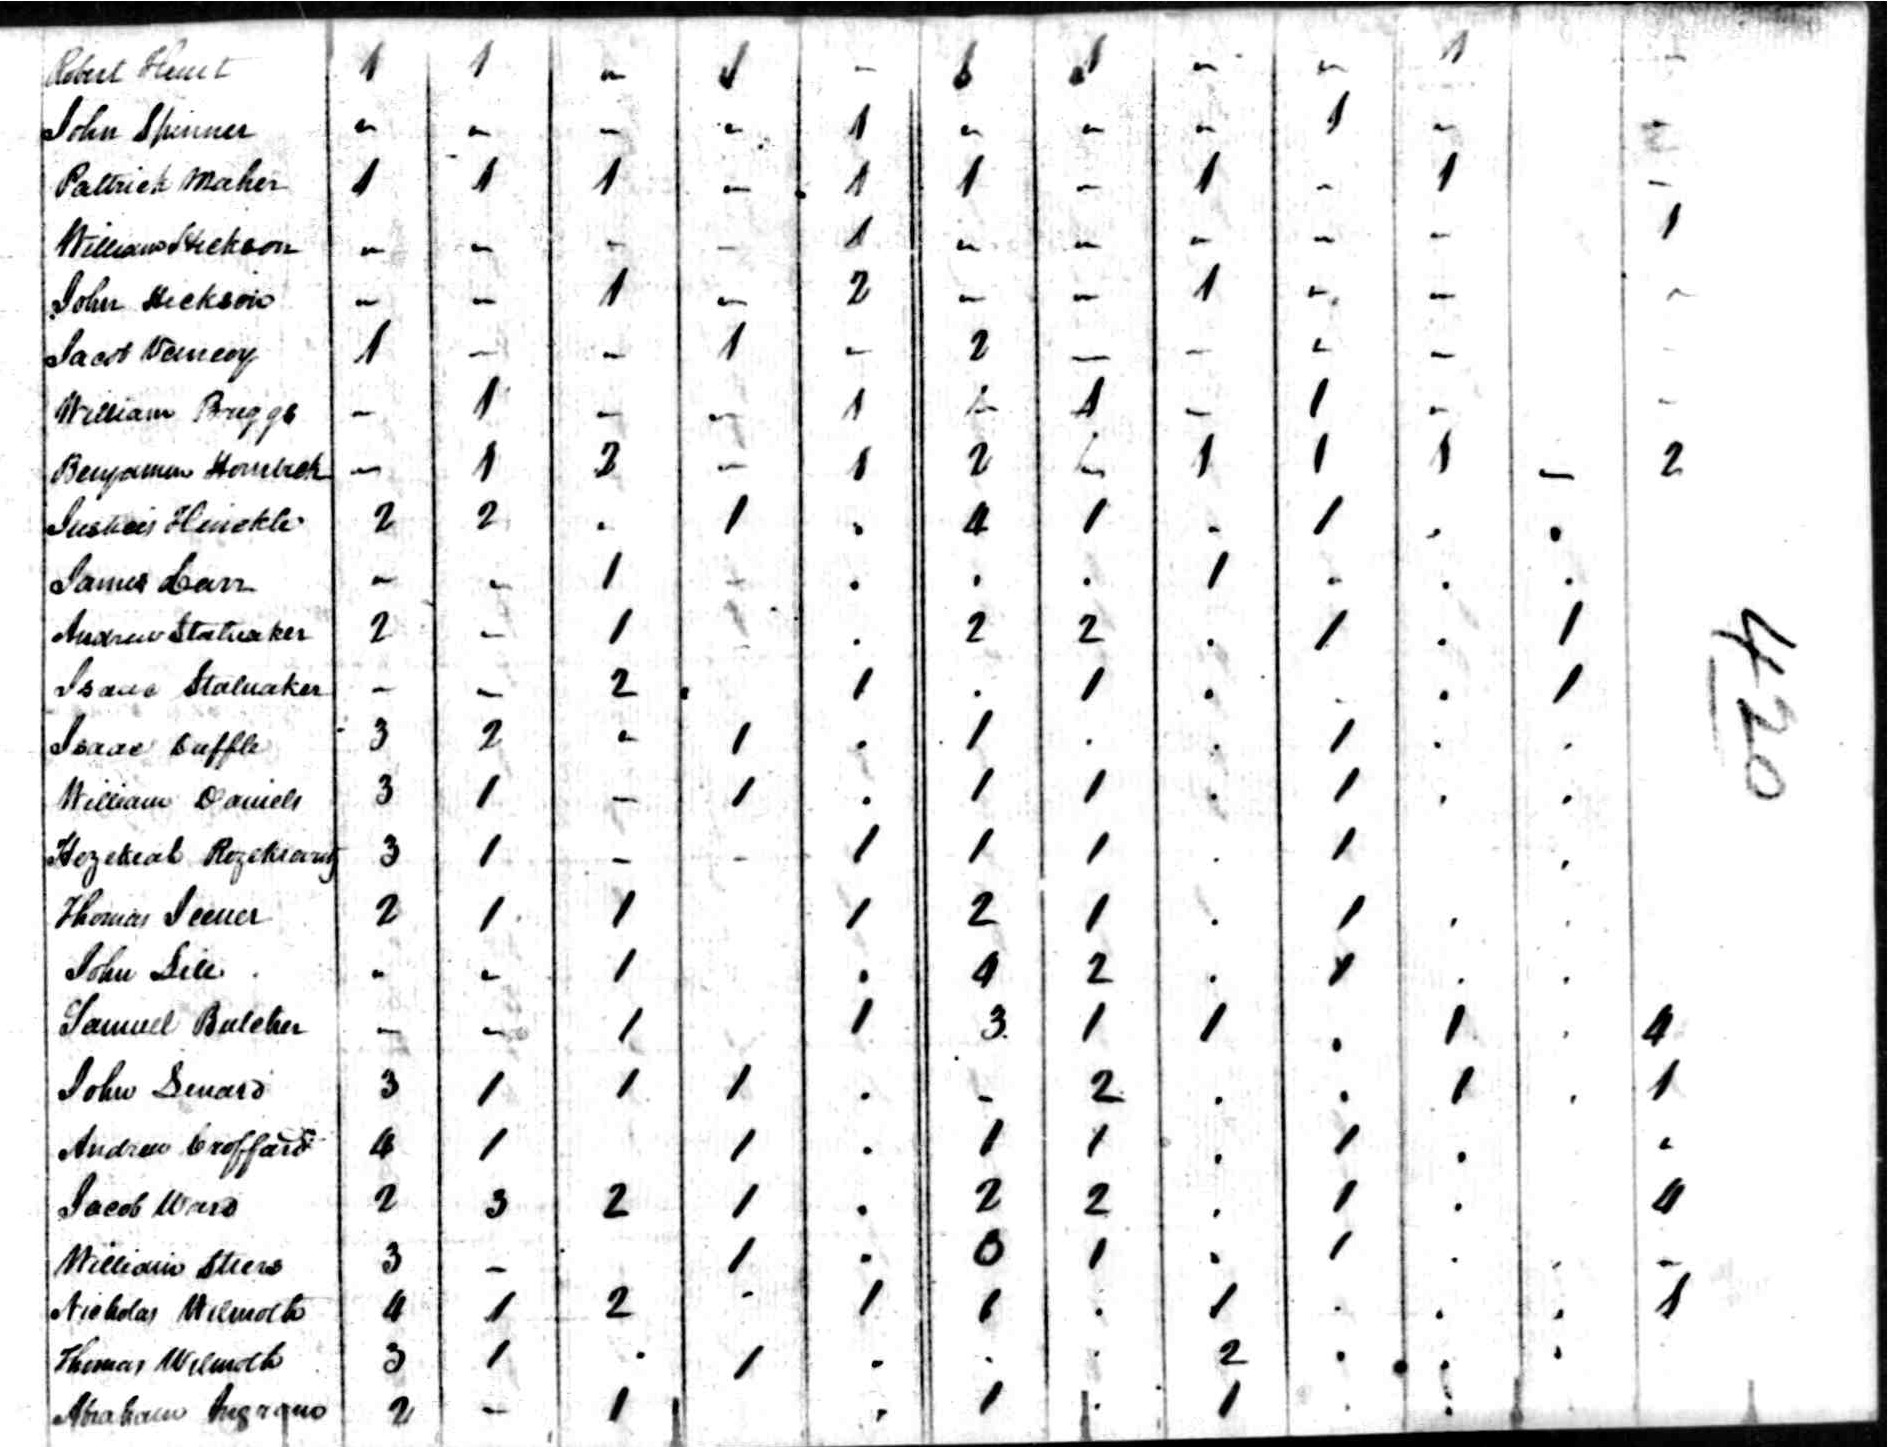 Robert Hunt 1 1 - 1 - 1 1 - - 1 -
John Spinner - - - - 1 - - - 1 - -
Pattrick Maher 1 1 1 - 1 1 - 1 - 1 -
William Hickson - - - - 1 - - - - - 1
John Hickson - - 1 - 2 - - 1 - - -
Jacob 1 - - 1 - 2 - - - - -
William Briggs - 1 - - 1 - 1 - 1 - -
Benjamin Hornbeck - 1 2 - 1 2 - 1 1 1 - 2
Hinckle 2 2 . 1 . 4 1 . 1 . .
James Carr - - 1 - . . . 1 - . .
Andrew Stalnaker 2 - 1 . 2 2 . 1 . 1
Isaac Stalnaker - - 2 . 1 . 1 . . . 1
Isaac Cuffle 3 2 - 1 . 1 . . 1 . .
William Daniels 3 1 - 1 . 1 1 . 1 . .
Hezekeal 3 1 - - 1 1 1 . 1 .
Thomas 2 1 1 1 2 1 . 1 . .
John - - 1 . 4 2 . 1 . .
Samuel Butcher - - 1 1 3 1 1 . 1 . 4
John 3 1 1 1 . - 2 . . 1 . 1
Andrew Croffard 4 1 1 . 1 1 . 1 . -
Jacob Ward 2 3 2 1 . 2 2 . 1 . 4
William Stiers 3 - 1 . 0 1 . 1 . . -
Nicholas Wilmoth 4 1 2 - 1 1 . 1 . . . 1
Thomas Wilmoth 3 1 . 1 . . . 2 . . .
Abraham Ingram 2 - 1 . 1 . 1 . .
420